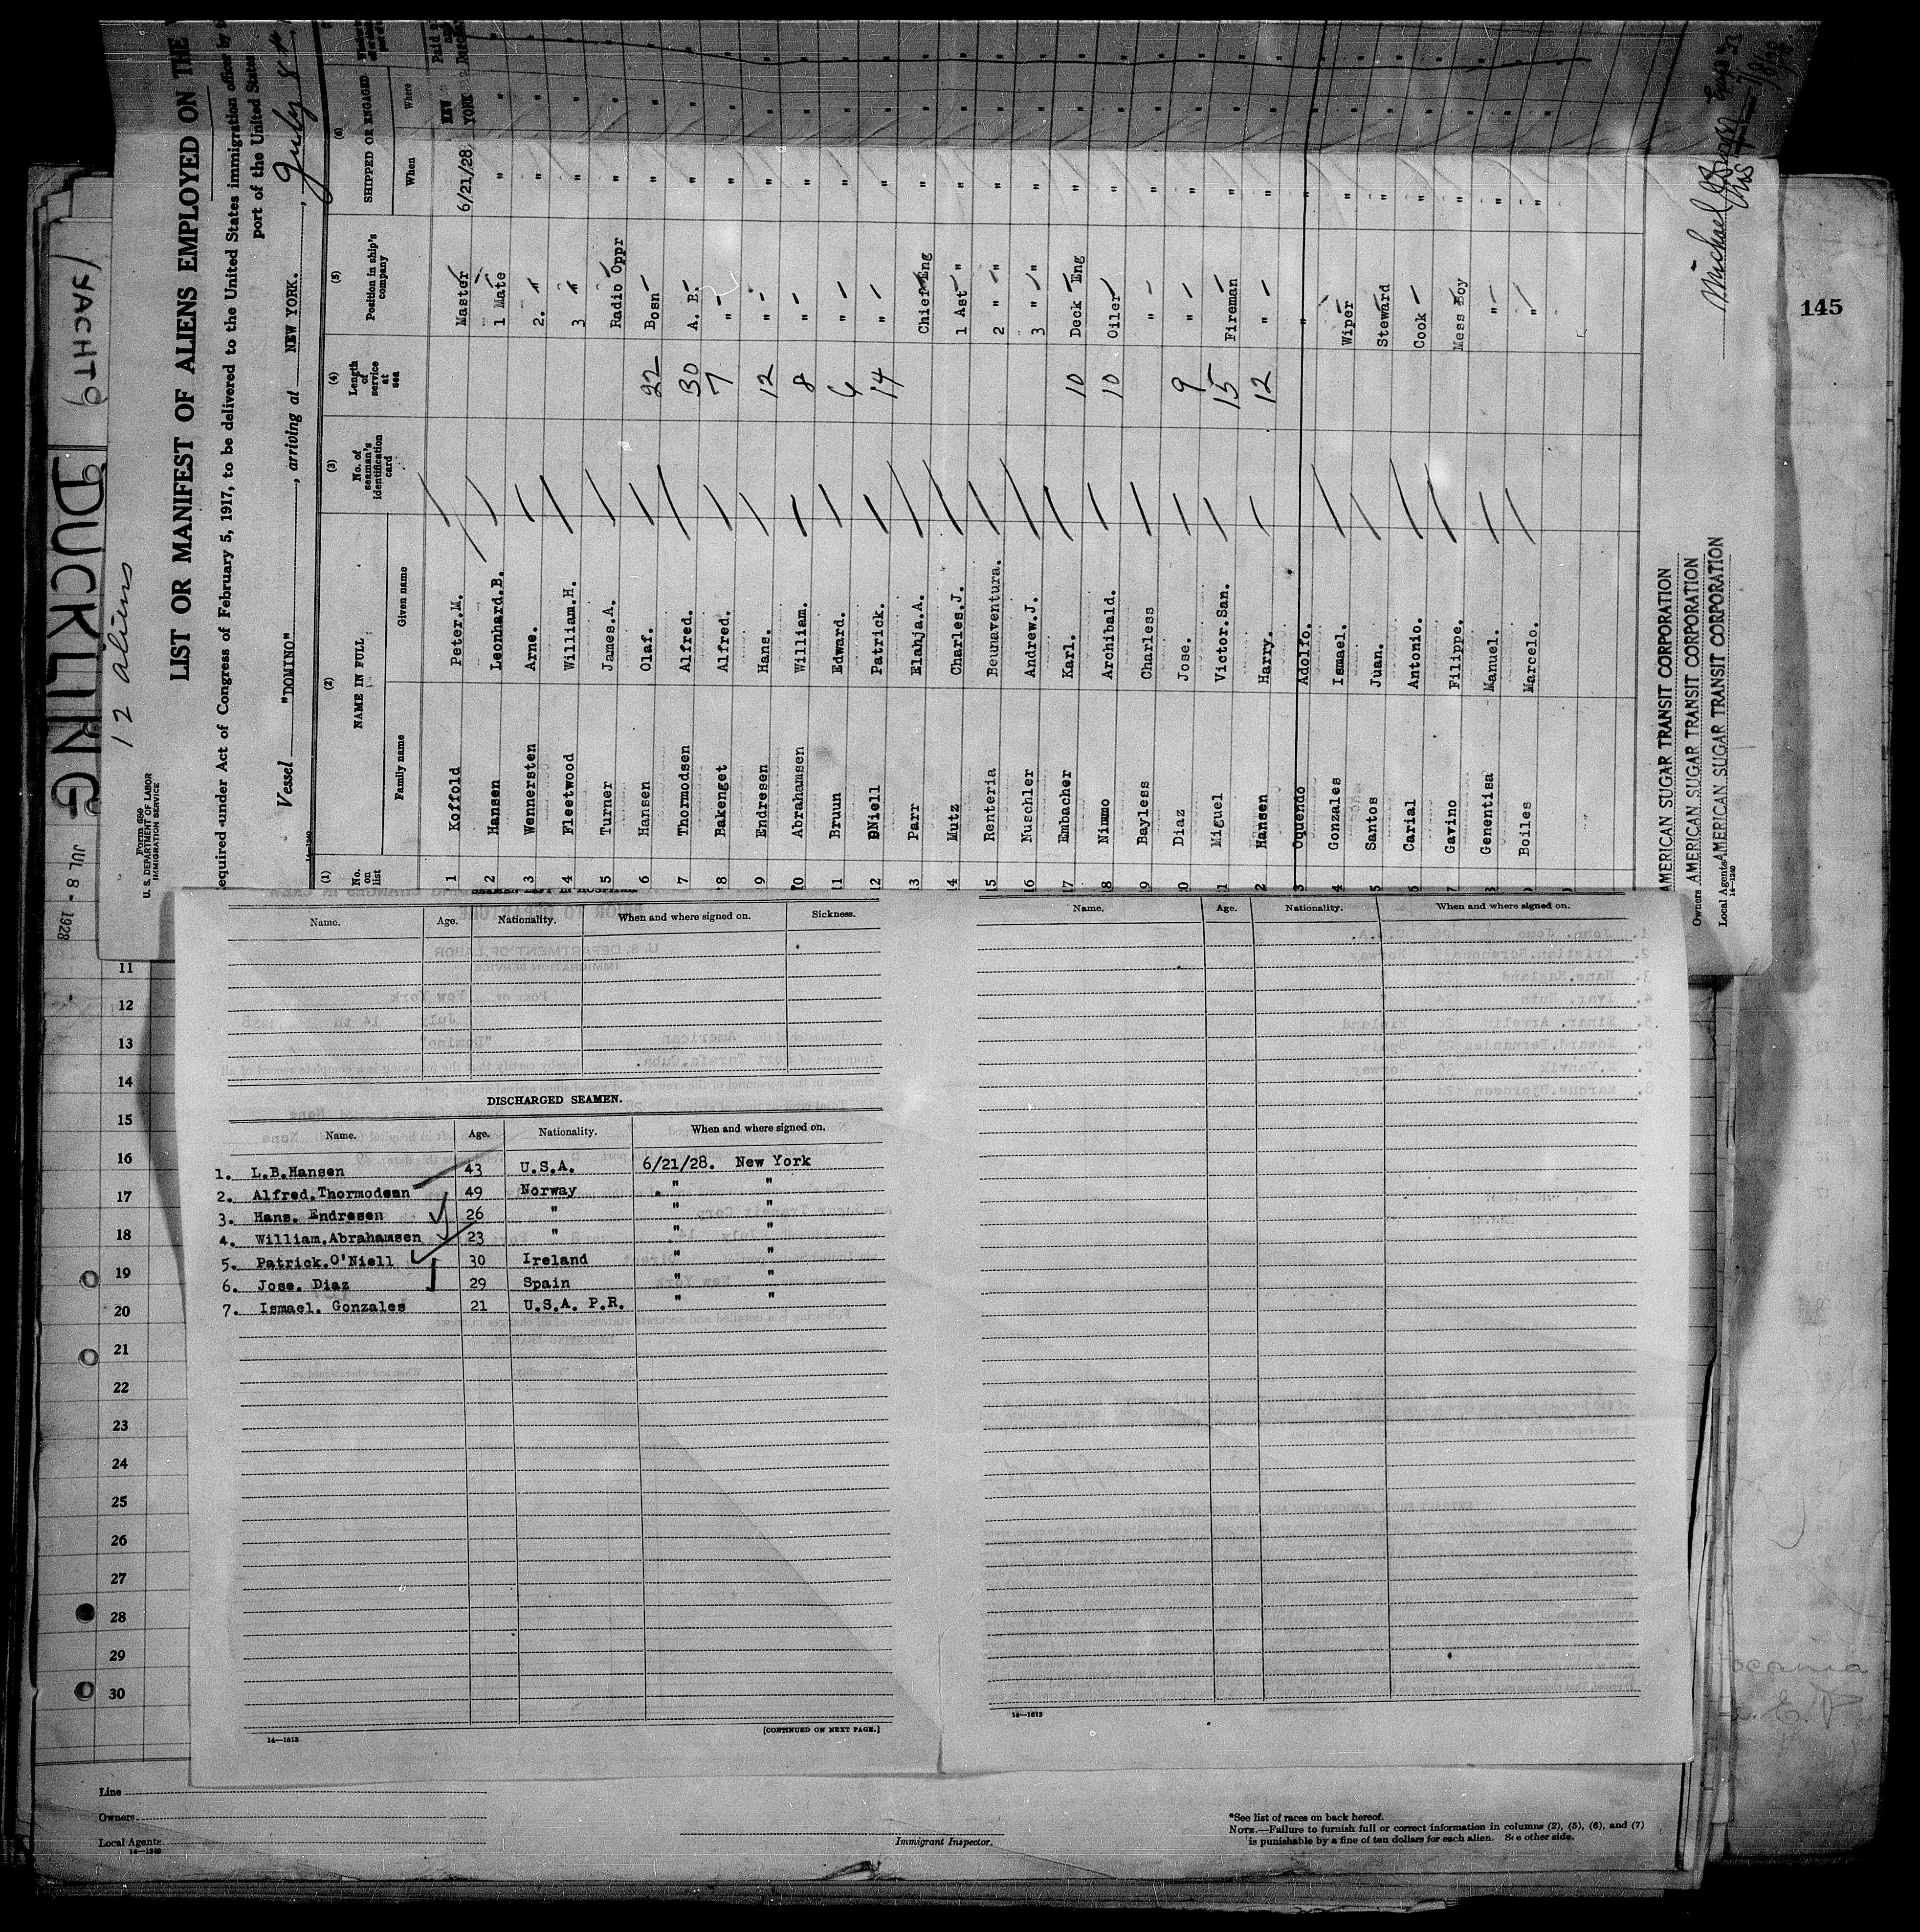 YACHT
DUCKLING
JUL 8 - 1928
12 aliens
Form 689
U. S. DEPARTMENT OF LABOR
IMMIGRATION SERVICE
LIST OR MANIFEST OF ALIENS EMPLOYED ON THE
equired under Act of Congress of February 5, 1917, to be delivered to the United States immigration officer by t
port of the United States
Vessel "DOMINO", arriving at NEW YORK., July 8th,
(1) (2) (3) (4) (5) (6)
No. on list NAME IN FULL No. of seaman's identification card Length of service at sea Position in ship's company SHIPPED OR ENGAGED
Family name Given name When Where
1 Koffold Peter.M. Master 6/21/28. NEW YORK
2 Hansen Leonhard.B. 1 Mate " "
3 Wennersten Arne. 2. " " "
4 Fleetwood William.H. 3 " " "
5 Turner James.A. Radio Oppr " "
6 Hansen Olaf. 22 Bosn " "
7 Thormodsen Alfred. 30 A. B. " "
8 Bakenget Alfred. 7 " " "
9 Endresen Hans. 12 " " "
10 Abrahamsen William. 8 " " "
11 Bruun Edward. 6 " " "
12 ONiell Patrick. 14 " " "
13 Parr Elahja.A. Chief Eng " "
14 Mutz Charles.J. 1 Ast " " "
15 Renteria Beunaventura. 2 " " " "
16 Nuschler Andrew.J. 3 " " " "
17 Embacher Karl. 10 Deck Eng " "
18 Nimmo Archibald. 10 Oiler " "
9 Bayless Charless " " "
0 Diaz Jose. 9 " " "
1 Miguel Victor.San. 15 Fireman " "
2 Hansen Harry. 12 " " "
3 Oquendo Adolfo. " " "
4 Gonzales Ismael. Wiper " "
5 Santos Juan. Steward " "
6 Carial Antonio. Cook " "
7 Gavino Filippe. Mess Boy " "
8 Genentisa Manuel. " " "
9 Boiles Marcelo. " " "
AMERICAN SUGAR TRANSIT CORPORATION
Owners AMERICAN SUGAR TRANSIT CORPORATION
Local Agents AMERICAN SUGAR TRANSIT CORPORATION
14-1240
Michael
145
Name. Age. Nationality. When and where signed on. Sickness.
DISCHARGED SEAMEN.
Name. Age. Nationality. When and where signed on.
1. L.B.Hansen 43 U.S.A. 6/21/28. New York
2. Alfred.Thormodsen 49 Norway " "
3. Hans. Endresen 26 " " "
4. William.Abrahamsen 23 " " "
5. Patrick.O'Niell 30 Ireland " "
6. Jose. Diaz 29 Spain " "
7. Ismael. Gonzales 21 U.S.A. P.R. " "
14—1613
[CONTINUED ON NEXT PAGE.]
Name. Age. Nationality. When and where signed on.
14—1613
11
12
13
14
15
16
17
18
19
20
21
22
23
24
25
26
27
28
29
30
Line
Owners
Local Agents
14—1240
Immigrant Inspector.
*See list of races on back hereof.
NOTE.—Failure to furnish full or correct information in columns (2), (5), (6), and (7)
is punishable by a fine of ten dollars for each alien. See other side.